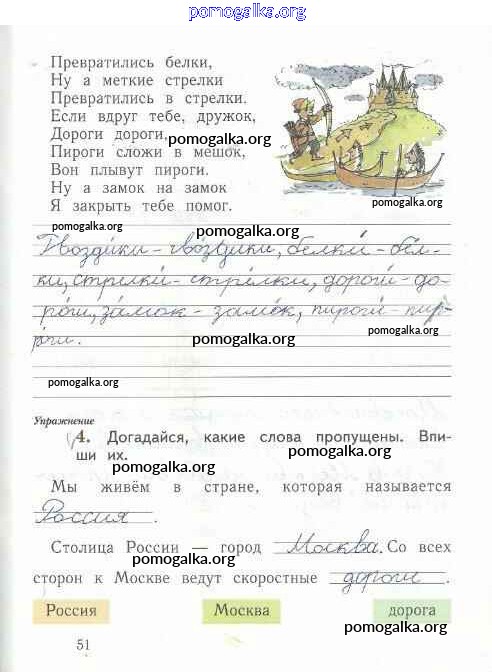 pomogalka.org
Превратились белки,
Ну а меткие стрелки
Превратились в стрелки.
Если вдруг тебе, дружок,
Дороги дороги,
pomogalka.org
Пироги сложи в мешок,
Вон плывут пироги.
Ну а замок на замок
Я закрыть тебе помог.
pomogalka.org
pomogalka.org
pomogalka.org
Гвозди́ки - гво́здики, белки́ - бе́л-
ки, стрелки́ - стре́лки, доро́ги - до-
роги, за́мок - замо́к, пироги́ - пи-
ро́ги.
pomogalka.org
pomogalka.org
pomogalka.org
Упражнение
4. Догадайся, какие слова пропущены. Впи-
ши их.
pomogalka.org
pomogalka.org
Мы живём в стране, которая называется
Россия.
pomogalka.org
Столица России — город Москва. Со всех
сторон к Москве ведут скоростные дороги.
pomogalka.org
Россия Москва дорога
pomogalka.org
51